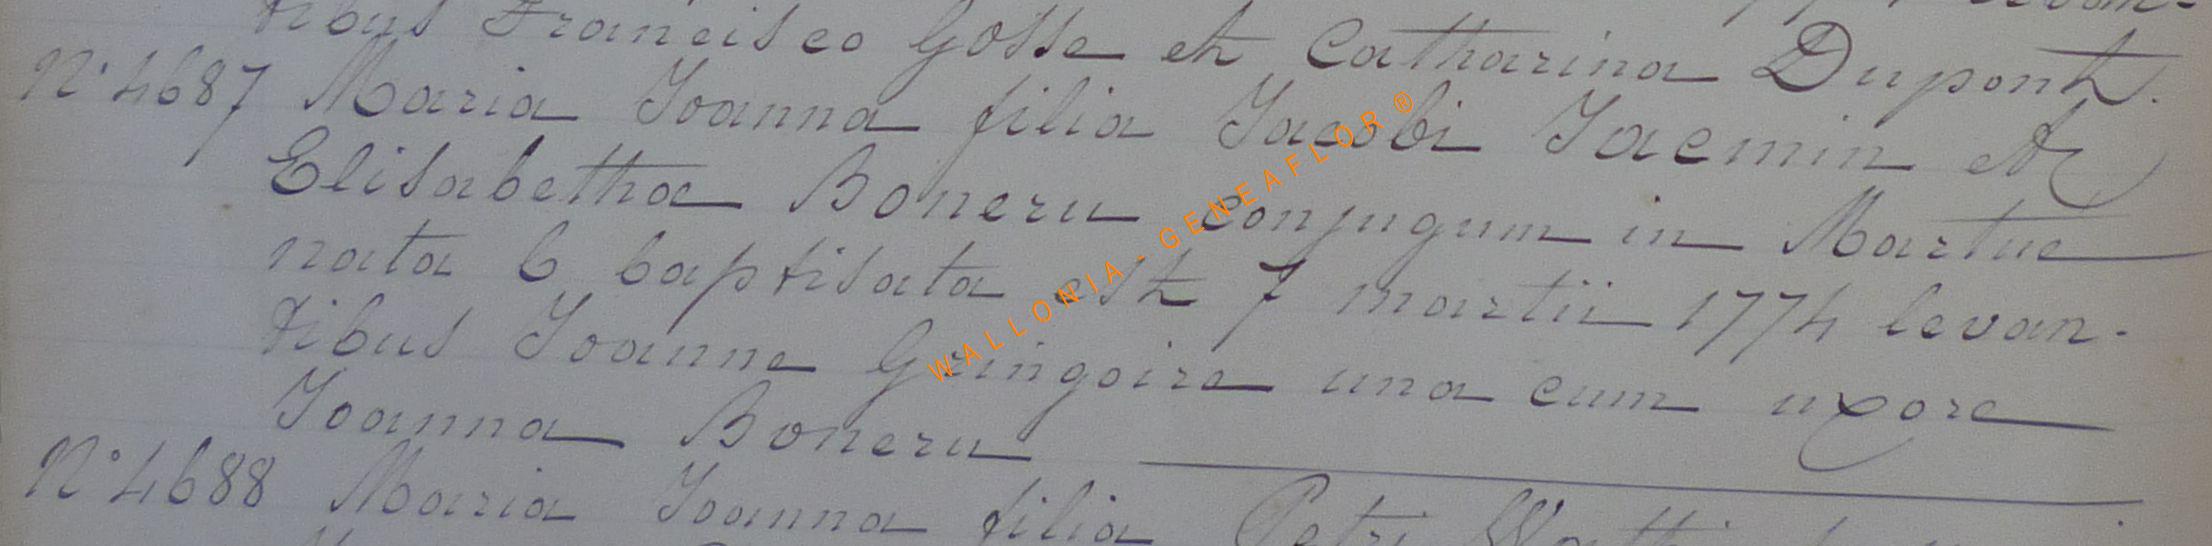 tibus Francisco Gosse et Catharina Dupont.
N° 4687 Maria Joanna filia Jacobi Jacmin et
Elisabetha Boneru conjugum in Martue
nata 6 baptisata est 7 martii 1774 levan-
tibus Joanne Gringoire una cum uxore
Joanna Boneru
N° 4688 Maria Joanna filia Petri
WALLONIA-GENEAFLOR®